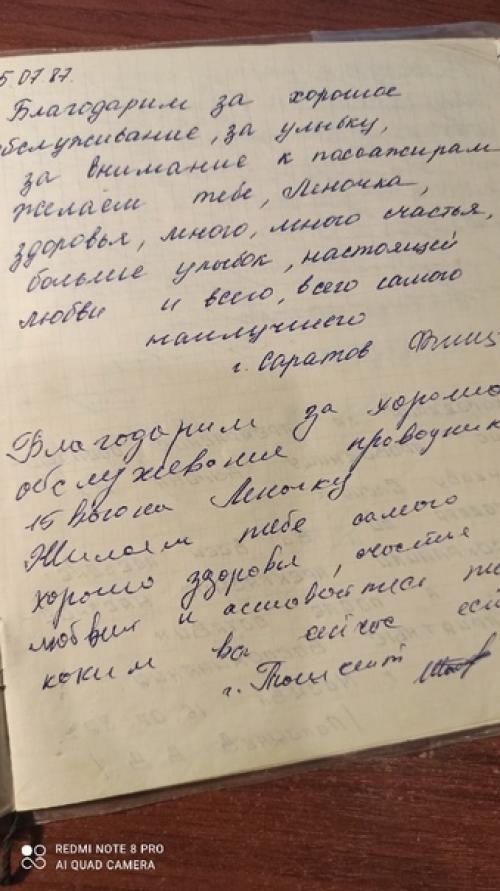 5.07.87.
Благодарим за хорошое
обслуживание, за улыбку,
за внимание к пассажирам
желаем тебе, Леночка,
здоровья, много, много счастья,
больше улыбок, настоящей
любви и всего, всего самого
наилучшего
г. Саратов
Благодарим за хорошо
обслуживание проводник
15 вогона Леночку
Жилаем тебе самого
хорошо здоровья, счастия
любви и астовайтися
коким ви сейчос
г. Ташкент
REDMI NOTE 8 PRO
AI QUAD CAMERA